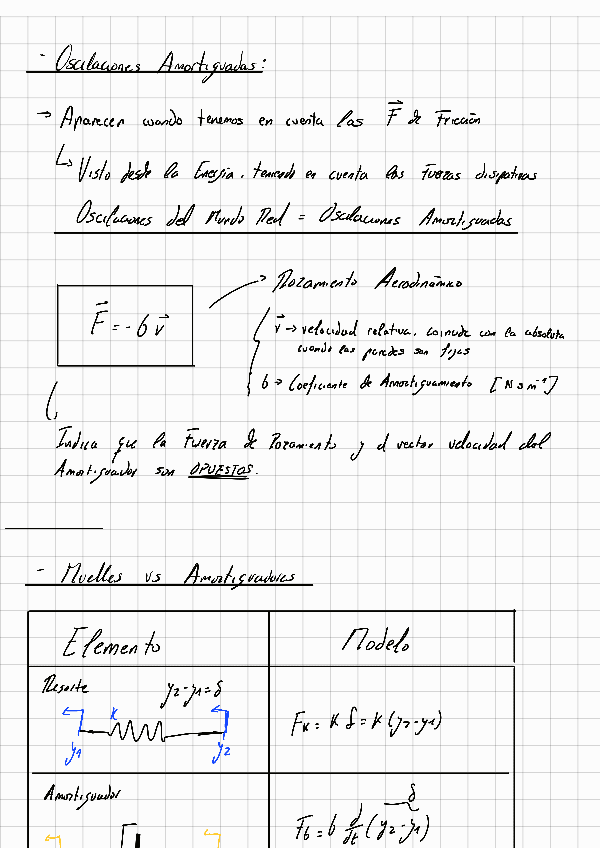 - Oscilaciones Amortiguadas:
→ Aparecen cuando tenemos en cuenta las F⃗ de Fricción
↳ Visto desde la Energía, teniendo en cuenta las Fuerzas disipativas
Oscilaciones del Mundo Real = Oscilaciones Amortiguadas
F⃗ = - b v⃗
Rozamiento Aerodinámico
v⃗ → velocidad relativa, coincide con la absoluta
cuando las paredes son fijas
b → Coeficiente de Amortiguamiento [N s m⁻¹]
Indica que la Fuerza de Rozamiento y el vector velocidad del
Amortiguador son OPUESTOS.
- Muelles vs Amortiguadores
Elemento
Modelo
Resorte y2-y1=δ
K
y1 y2
Fk = K δ = K (y2-y1)
Amortiguador
δ
Fb = b d/dt (y2-y1)